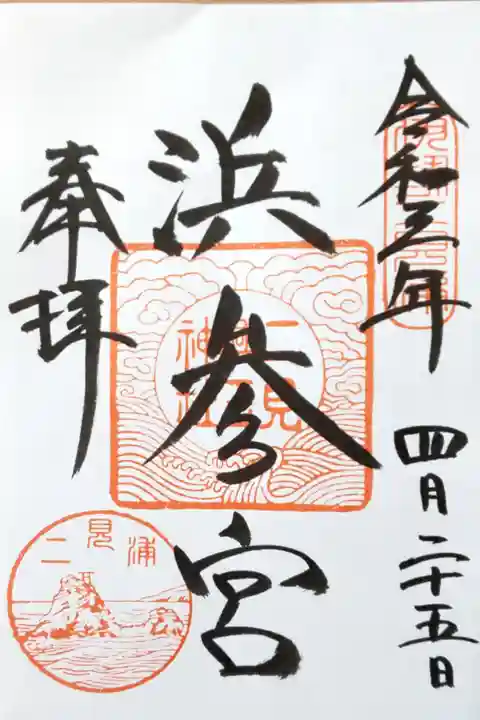 令和三年
四月二十五日
浜参宮
奉拝
二見
神社
二見浦